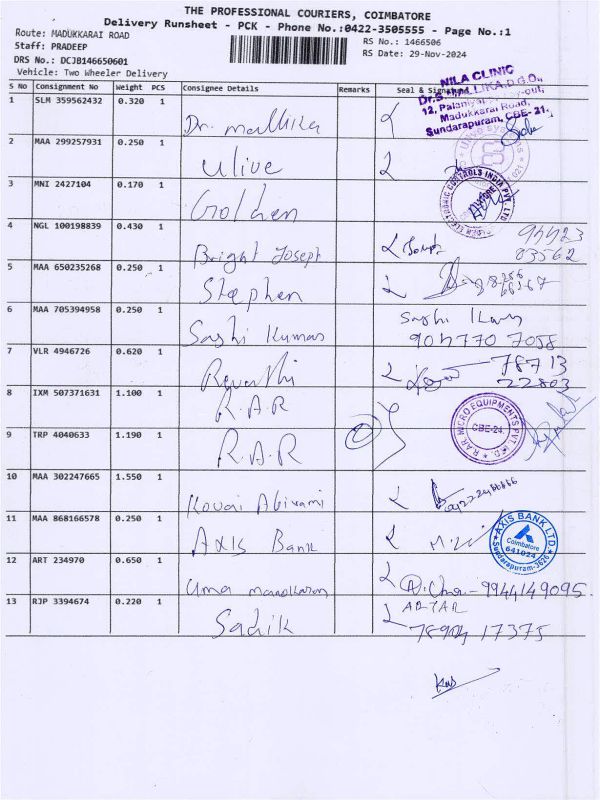 THE PROFESSIONAL COURIERS, COIMBATORE
Delivery Runsheet - PCK - Phone No.:0422-3505555 - Page No.:1
Route: MADUKKARAI ROAD
Staff: PRADEEP
DRS No.: DCJB146650601
Vehicle: Two Wheeler Delivery
RS No.: 1466506
RS Date: 29-Nov-2024
S No Consignment No Weight PCS Consignee Details Remarks Seal & Signature
NILA CLINIC
12, Palaniyappa
Madukkarai Road,
Sundarapuram, CBE-21.
1 SLM 359562432 0.320 1 Dr. mallika
2 MAA 299257931 0.250 1 Ulive
3 MNI 2427104 0.170 1 Golden
CONTROLS INDIA PVT. LTD
4 NGL 100198839 0.430 1 Bright Joseph Joseph
83562
5 MAA 650235268 0.250 1 Stephen
6 MAA 705394958 0.250 1 Sashi Kumar
7058
7 VLR 4946726 0.620 1 Revathi 78713
22803
8 IXM 507371631 1.100 1 R.A.R
R.A.R MICRO EQUIPMENTS PVT. LTD.
CBE-24.
9 TRP 4040633 1.190 1 R.A.R
10 MAA 302247665 1.550 1 Kovai Abirami
11 MAA 868166578 0.250 1 Axis Bank
AXIS BANK LTD.
Coimbatore
641024
Sundarapuram-3626
12 ART 234970 0.650 1 Uma manokaran 9944149095.
13 RJP 3394674 0.220 1 Sadik
17375